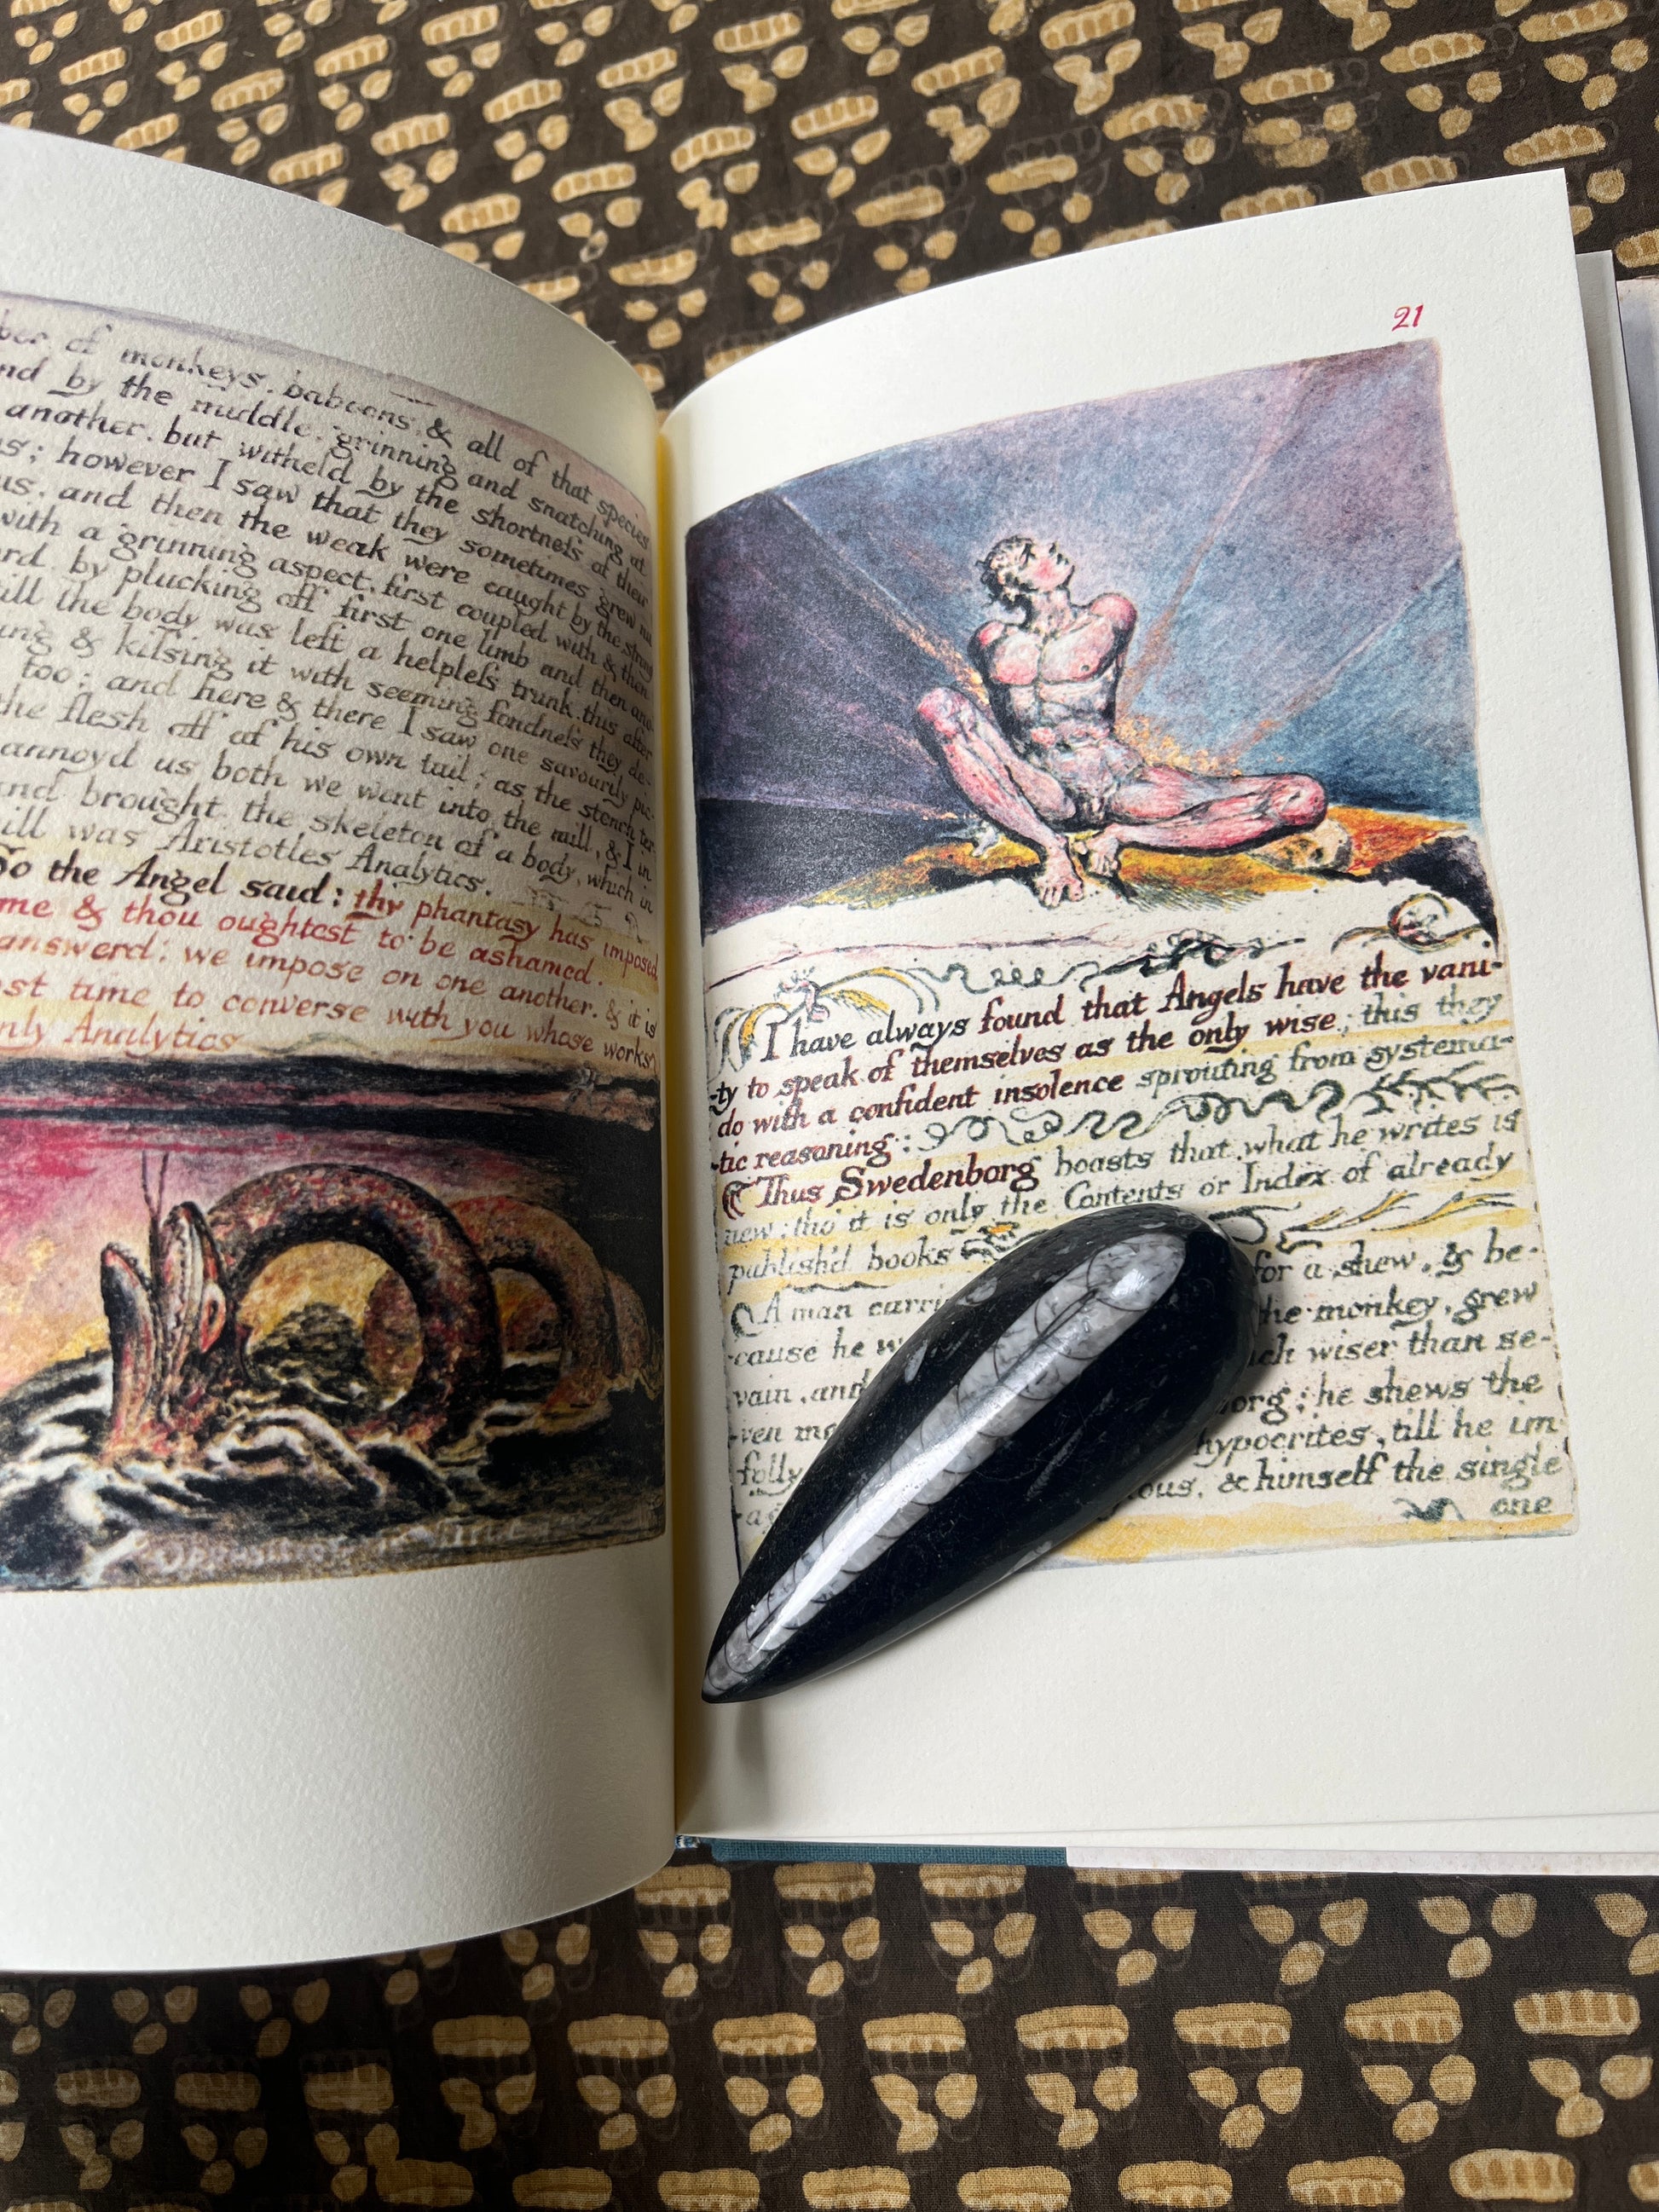 of monkeys. baboons. & all of that species
by the middle. grinning and snatching at
another. but witheld by the shortness of their
however I saw that they sometimes grew
and then the weak were caught by the strong
with a grinning aspect. first coupled with & then
by plucking off first one limb and then
till the body was left a helpless trunk. this after
& kissing it with seeming fondness they de-
too; and here & there I saw one savourily
the flesh off of his own tail; as the stench
annoyd us both we went into the mill, & I in
brought the skeleton of a body, which in
was Aristotles Analytics.
So the Angel said: thy phantasy has imposed
me & thou oughtest to be ashamed.
answerd: we impose on one another. & it is
time to converse with you whose works
only Analytics
Opposition is
21
I have always found that Angels have the vani-
-ty to speak of themselves as the only wise; this they
do with a confident insolence sprouting from systema-
-tic reasoning:
Thus Swedenborg boasts that what he writes is
new; tho it is only the Contents or Index of already
publish'd books
A man for a shew, & be-
-cause he the monkey, grew
vain, and wiser than se-
-ven he shews the
folly hypocrites, till he im
& himself the single
one